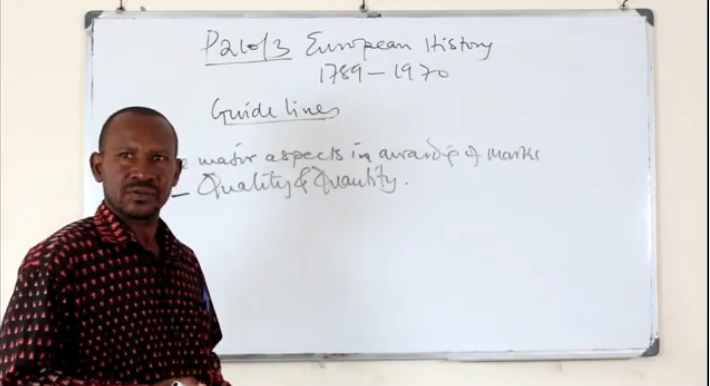 P210/3 European History
1789 – 1970
Guidelines
major aspects in awarding of marks
– Quality & Quantity.